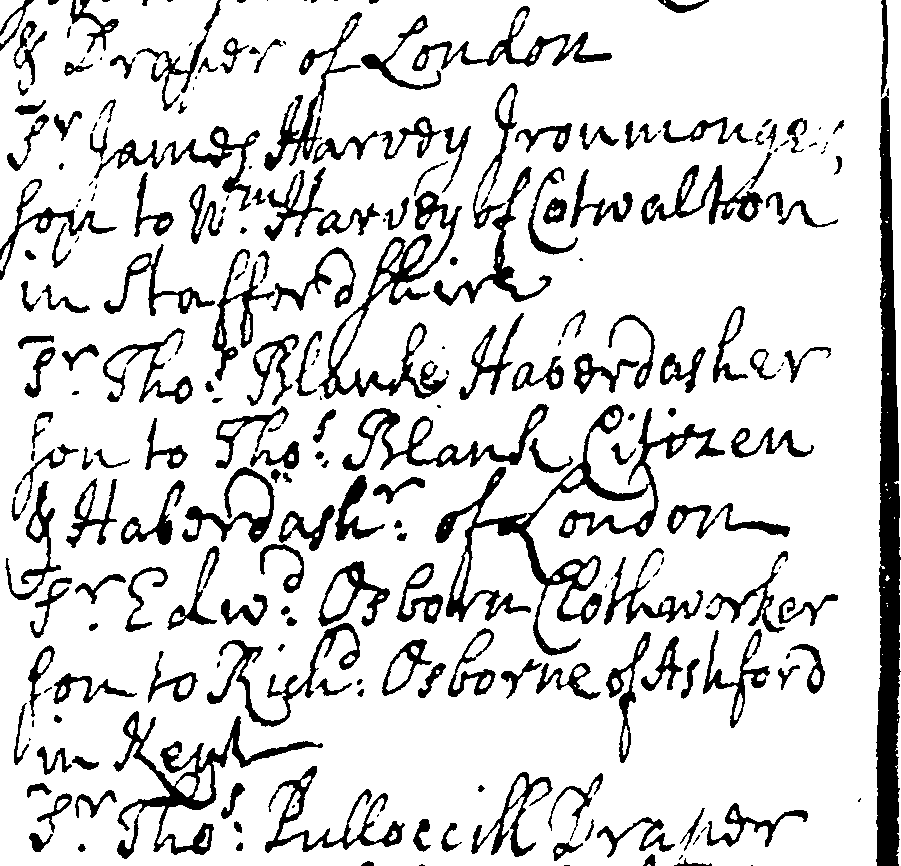 & Draper of London
Sr. James Harvey Ironmonger,
son to Wm. Harvey of Cotwalton
in Staffordshire
Sr. Thos. Blanke Haberdasher
son to Thos. Blank Citizen
& Haberdashr. of London
Sr. Edwd. Osborn Clothworker
son to Richd. Osborne of Ashford
in Kent
Sr. Thos. Pulloccill Draper